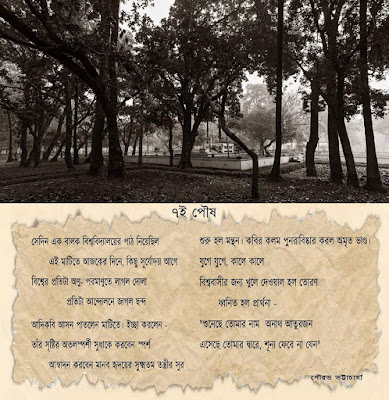 ৭ই পৌষ
সেদিন এক বালক বিশ্ববিদ্যালয়ের পাঠ নিয়েছিল
এই মাটিতে আজকের দিনে, কিছু সূর্যোদয় আগে
বিশ্বের প্রতিটা অণু- পরমাণুতে লাগল দোলা
প্রতিটা আন্দোলনে জাগল ছন্দ
আদিকবি আসন পাতলেন মাটিতে। ইচ্ছা করলেন -
তাঁর সৃষ্টির অতলস্পর্শী সুধাকে করবেন স্পর্শ
আস্বাদন করবেন মানব হৃদয়ের সুক্ষ্মতম তন্ত্রীর সুর
শুরু হল মন্থন। কবির কলম পুনরাবিষ্কার করল অমৃত ভাণ্ড।
যুগে যুগে, কালে কালে
বিশ্ববাসীর জন্য খুলে দেওয়াল হল তোরণ
ধ্বনিত হল প্রার্থনা -
"শুনেছে তোমার নাম অনাথ আতুরজন
এসেছে তোমার দ্বারে, শূন্য ফেরে না যেন"
সৌরভ ভট্টাচার্য্য